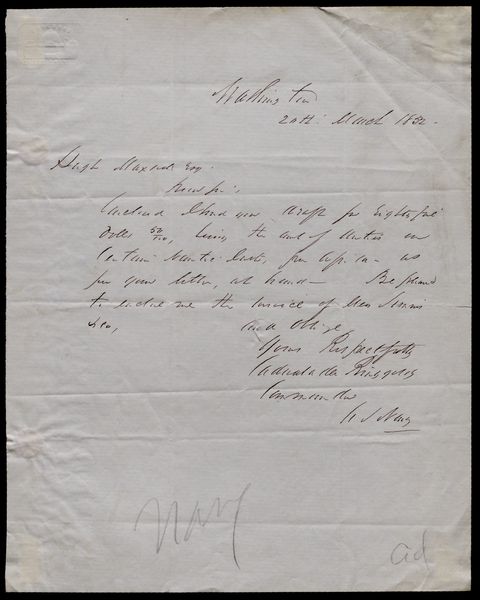 Washington
20th: March 1852.
Hugh Maxwell Esq.
Dear Sir:
Enclosed I send you draft for Eighty five
Dolls 50/100, being the amt of duties on
Certain from Africa - as
per your letter, at hand - Be pleased
to enclose me the invoice of Mess
&co, and oblige
Yours Respectfully
Cadwalader Ringgold
Commander
U S Navy
Navy
ad